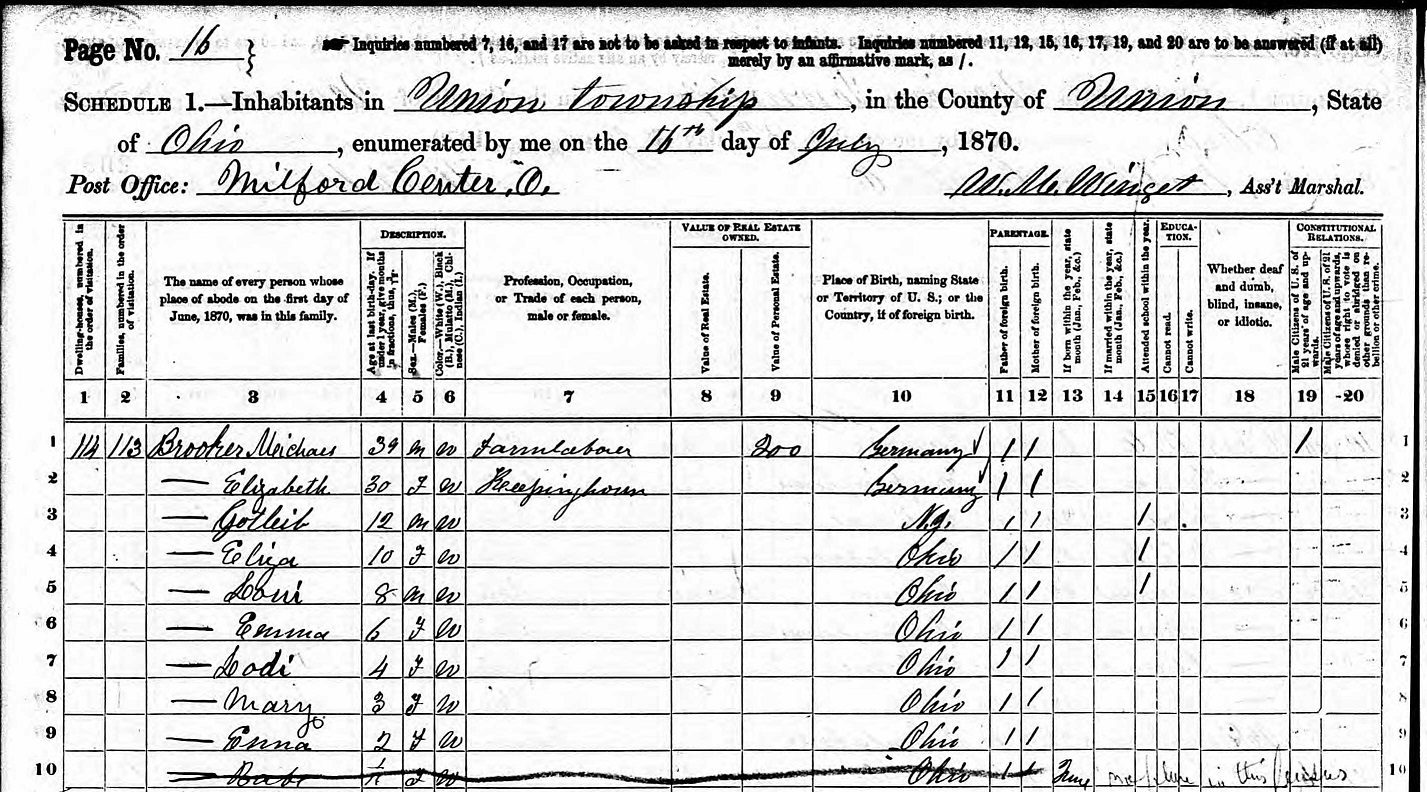 Page No. 16
Inquiries numbered 7, 16, and 17 are not to be asked in respect to infants. Inquiries numbered 11, 12, 15, 16, 17, 19, and 20 are to be answered (if at all)
merely by an affirmative mark, as /.
SCHEDULE 1.—Inhabitants in Union Township, in the County of Union, State
of Ohio, enumerated by me on the 16th day of July, 1870.
Post Office: Milford Center, O. W. M. Winget, Ass't Marshal.
Dwelling-houses, numbered in the order of visitation.
Families, numbered in the order of visitation.
The name of every person whose place of abode on the first day of June, 1870, was in this family.
DESCRIPTION.
Age at last birth-day. If under 1 year, give months in fractions, thus,
Sex.—Males (M.), Females (F.)
Color.—White (W.), Black (B.), Mulatto (M.), Chinese (C.), Indian (I.)
Profession, Occupation, or Trade of each person, male or female.
VALUE OF REAL ESTATE OWNED.
Value of Real Estate.
Value of Personal Estate.
Place of Birth, naming State or Territory of U. S.; or the Country, if of foreign birth.
PARENTAGE.
Father of foreign birth.
Mother of foreign birth.
If born within the year, state month (Jan., Feb., &c.)
If married within the year, state month (Jan., Feb., &c.)
Attended school within the year.
EDUCATION.
Cannot read.
Cannot write.
Whether deaf and dumb, blind, insane, or idiotic.
CONSTITUTIONAL RELATIONS.
Male Citizens of U. S. of 21 years of age and upwards.
Male Citizens of U. S. of 21 years of age and upwards, whose right to vote is denied or abridged on other grounds than rebellion or other crime.
1 2 3 4 5 6 7 8 9 10 11 12 13 14 15 16 17 18 19 -20
1 114 113 Brooker Meichael 39 M W Farmlaborer 200 Germany / / / 1
2 — Elizabeth 30 F W Keeping house Germany / / 2
3 — Gotleib 12 M W N.J. / / / 3
4 — Eliza 10 F W Ohio / / / 4
5 — Loui 8 M W Ohio / / / 5
6 — Emma 6 F W Ohio / / 6
7 — Lodi 4 F W Ohio / / 7
8 — Mary 3 F W Ohio / / 8
9 — Enna 2 F W Ohio / / 9
10 — Babe F W Ohio / / June in this 10